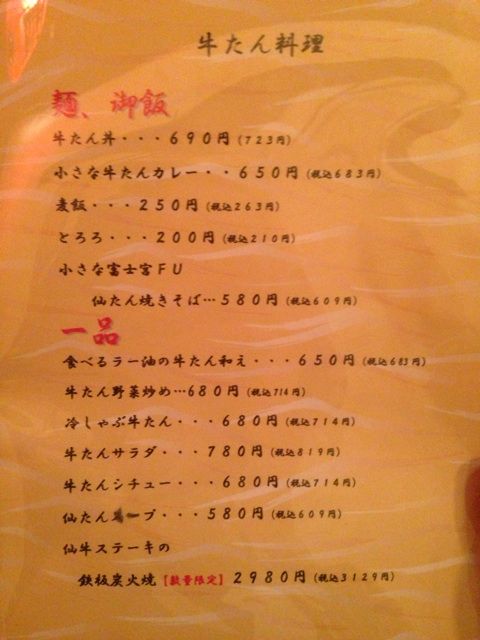 牛たん料理
麺、御飯
牛たん丼・・・690円(723円)
小さな牛たんカレー・・650円(税込683円)
麦飯・・・250円(税込263円)
とろろ・・・200円(税込210円)
小さな富士宮FU
仙たん焼きそば…580円(税込609円)
一品
食べるラー油の牛たん和え・・・650円(税込683円)
牛たん野菜炒め…680円(税込714円)
冷しゃぶ牛たん・・・680円(税込714円)
牛たんサラダ・・・780円(税込819円)
牛たんシチュー・・・680円(税込714円)
仙たんスープ・・・580円(税込609円)
仙牛ステーキの
鉄板炭火焼【数量限定】2980円(税込3129円)